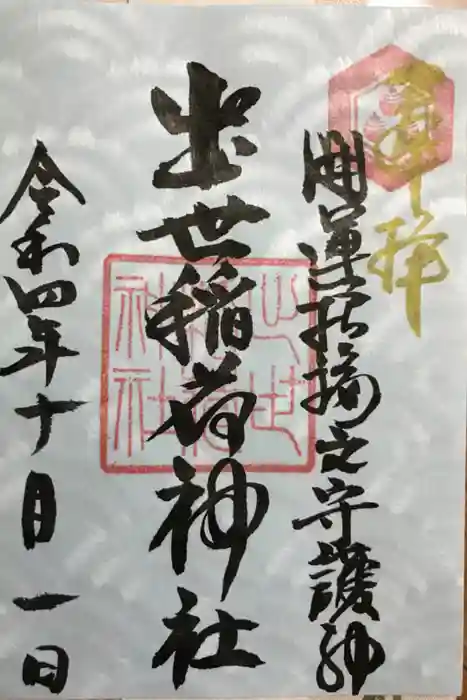 奉拝
開運
之守護神
出世稲荷神社
出世
稲荷
神社
令和四年十月一日